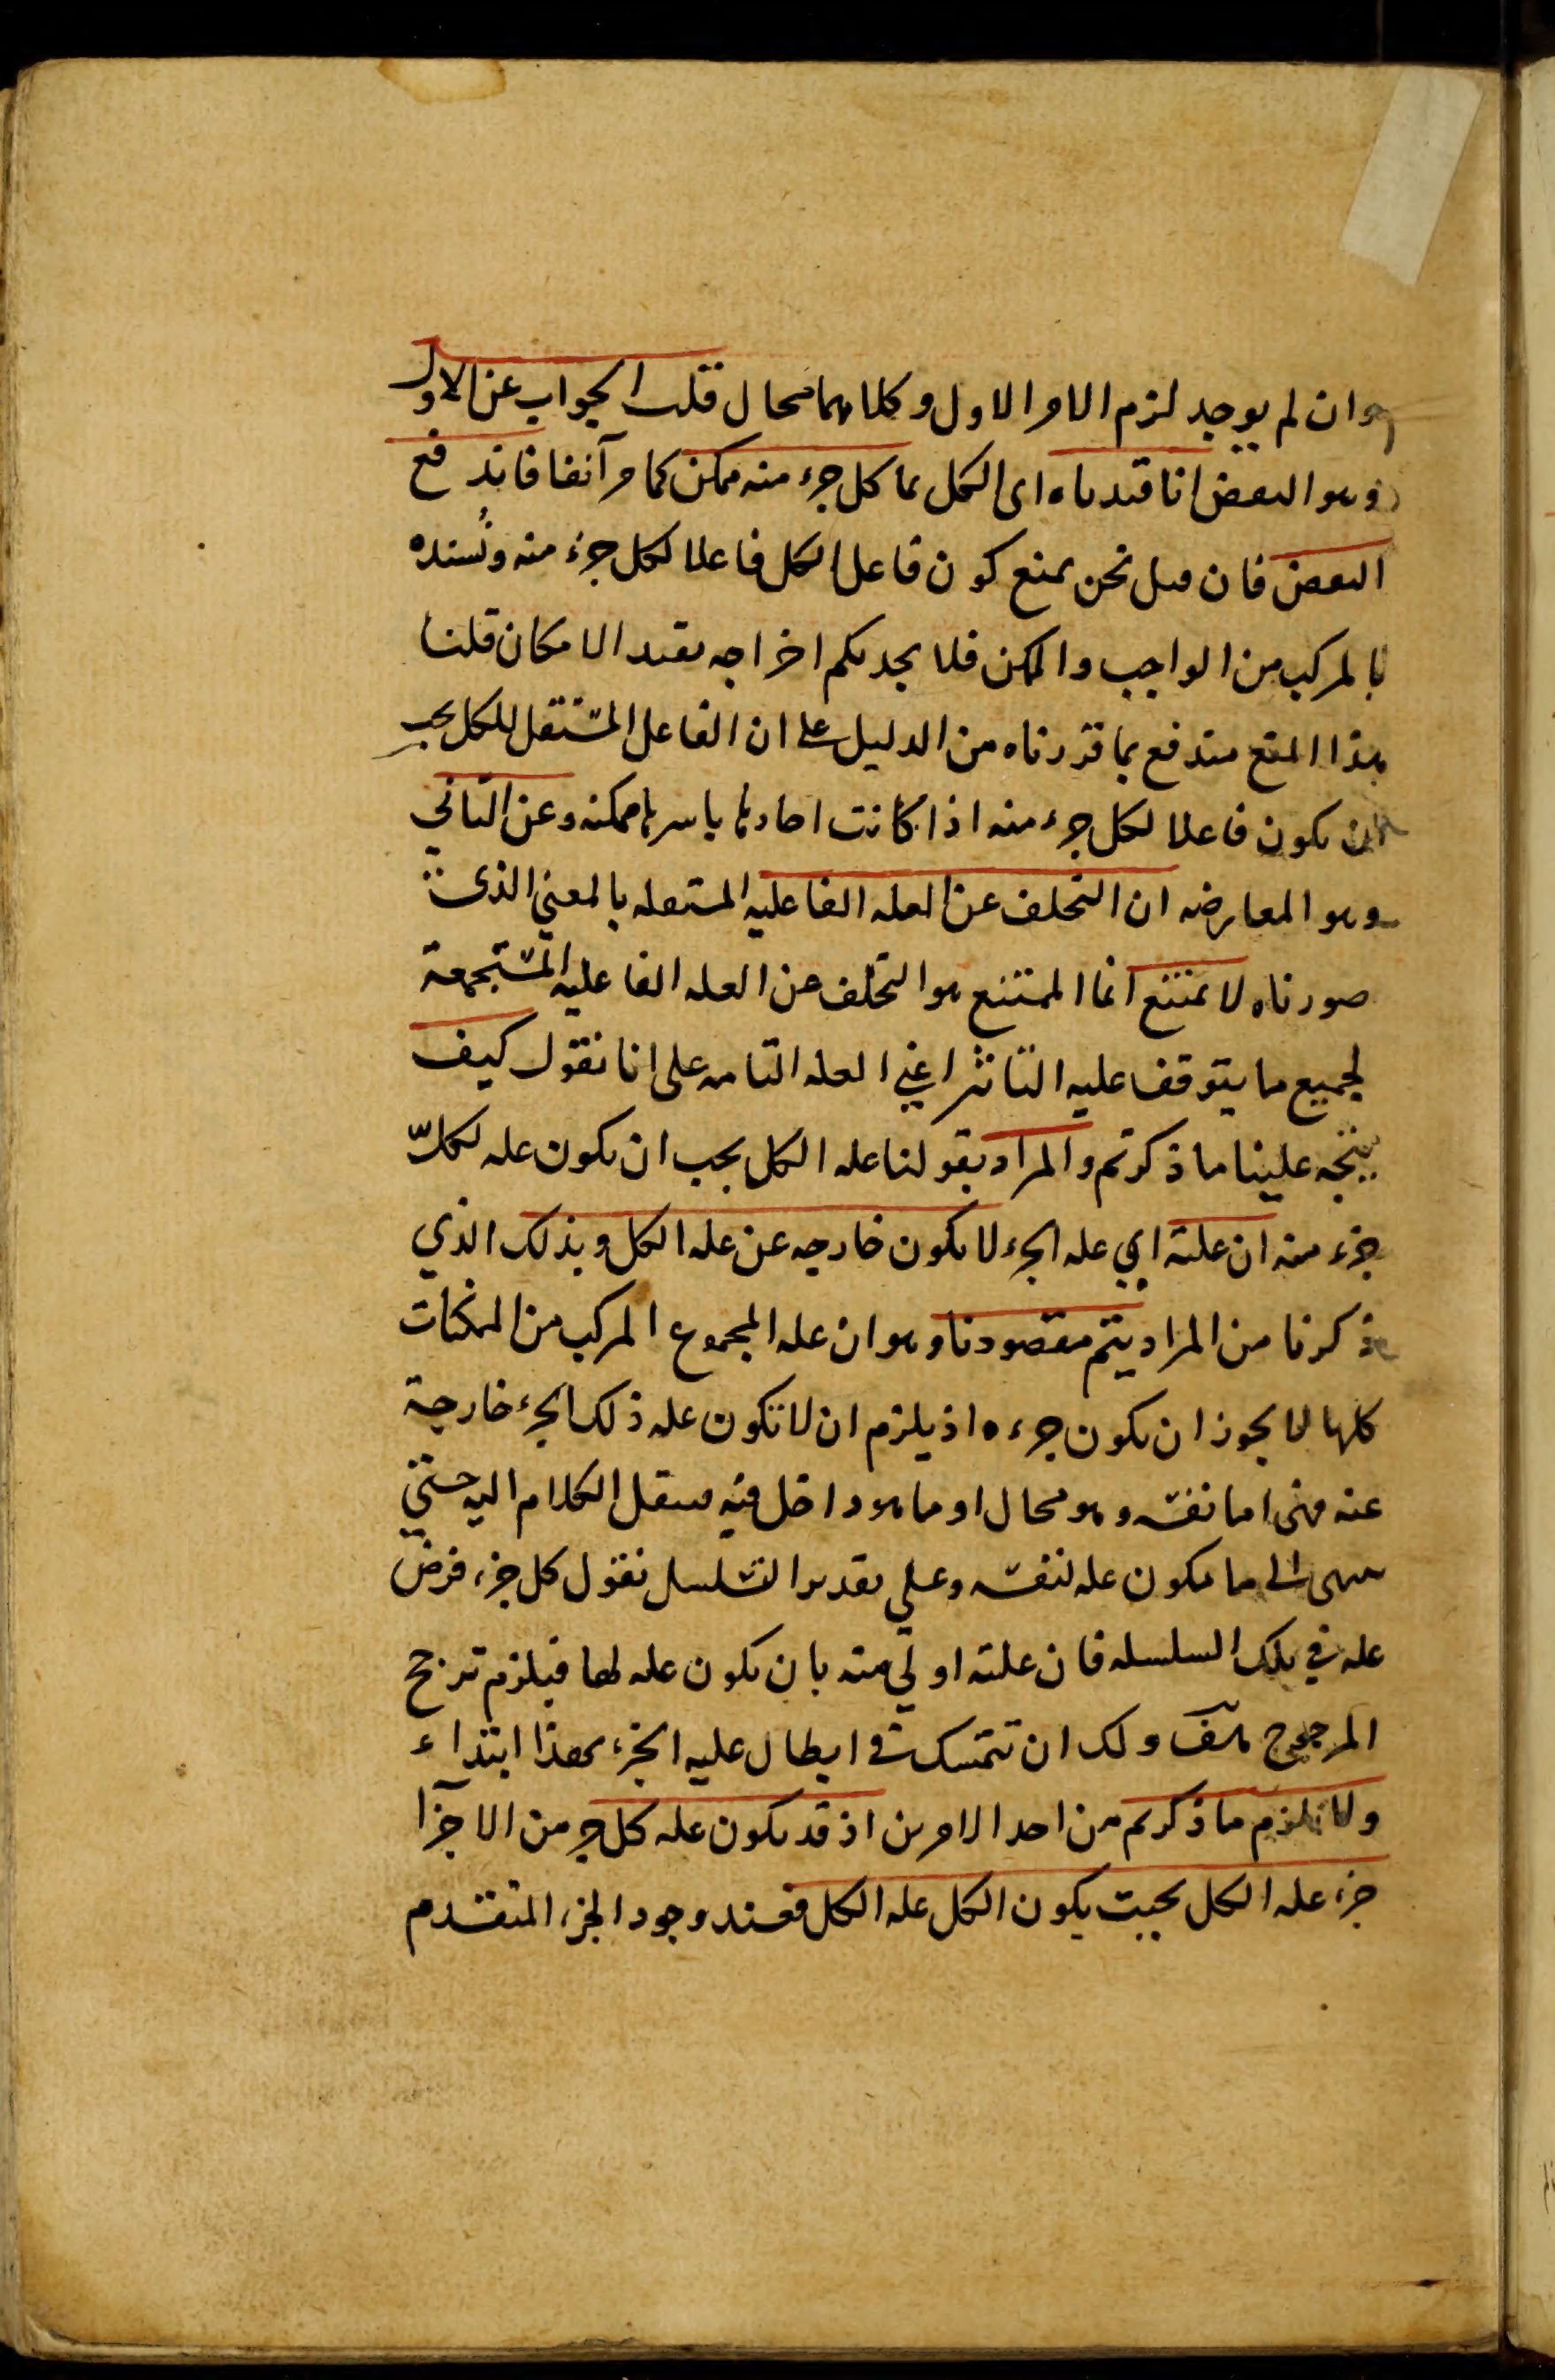 وان لم يوجد لزم الامر الاول وكلاهما محال قلت الجواب عن الاول
وهو النقض انا قيدناه اى الكل بما كل جزء منه ممكن كما مر آنفا فاندفع
النقض فان قيل نحن نمنع كون فاعل الكل فاعلا لكل جزء منه ونُسنده
بالمركب من الواجب والممكن فلا يجديكم اخراجه بقيد الامكان قلنا
هذا المنع مندفع بما قررناه من الدليل على ان الفاعل المستقل للكل يجب
ان يكون فاعلا لكل جزء منه اذا كانت احادها باسرها ممكنه وعن الثاني
وهو المعارضه ان التخلف عن العله الفاعليه المستقله بالمعنى الذى
صورناه لا يمتنع انما الممتنع هو التخلف عن العله الفاعليه المستجمعة
لجميع ما يتوقف عليه التاثير اعني العله التامه على انا نقول كيف
يتجه علينا ما ذكرتم والمراد بقولنا عله الكل يجب ان يكون عله لكلّ
جزء منه ان علته اي عله الجزء لا يكون خارجه عن عله الكل وبذلك الذي
ذكرنا من المراد يتم مقصودنا وهو ان عله المجموع المركب من الممكنات
كلها لا يجوز ان يكون جزءه اذ يلزم ان لا تكون عله ذلك الجزء خارجة
عنه فهى اما نفسه وهو محال او ما هو داخل فيه فينقل الكلام اليه حتى
ينتهى الى ما يكون عله لنفسه وعلى تقدير التسلسل نقول كل جزء فرض
عله في تلك السلسله فان علته اولى منه بان يكون عله لها فيلزم ترجح
المرجوح هف ولك ان تتمسك في ابطال عليه الجزء بهذا ابتداء
ولا يلزم ما ذكرتم من احد الامرين اذ قد يكون عله كل جزء من الاجزآ
جزء عله الكل بحيث يكون الكل عله الكل فعند وجود الجزء المتقدم